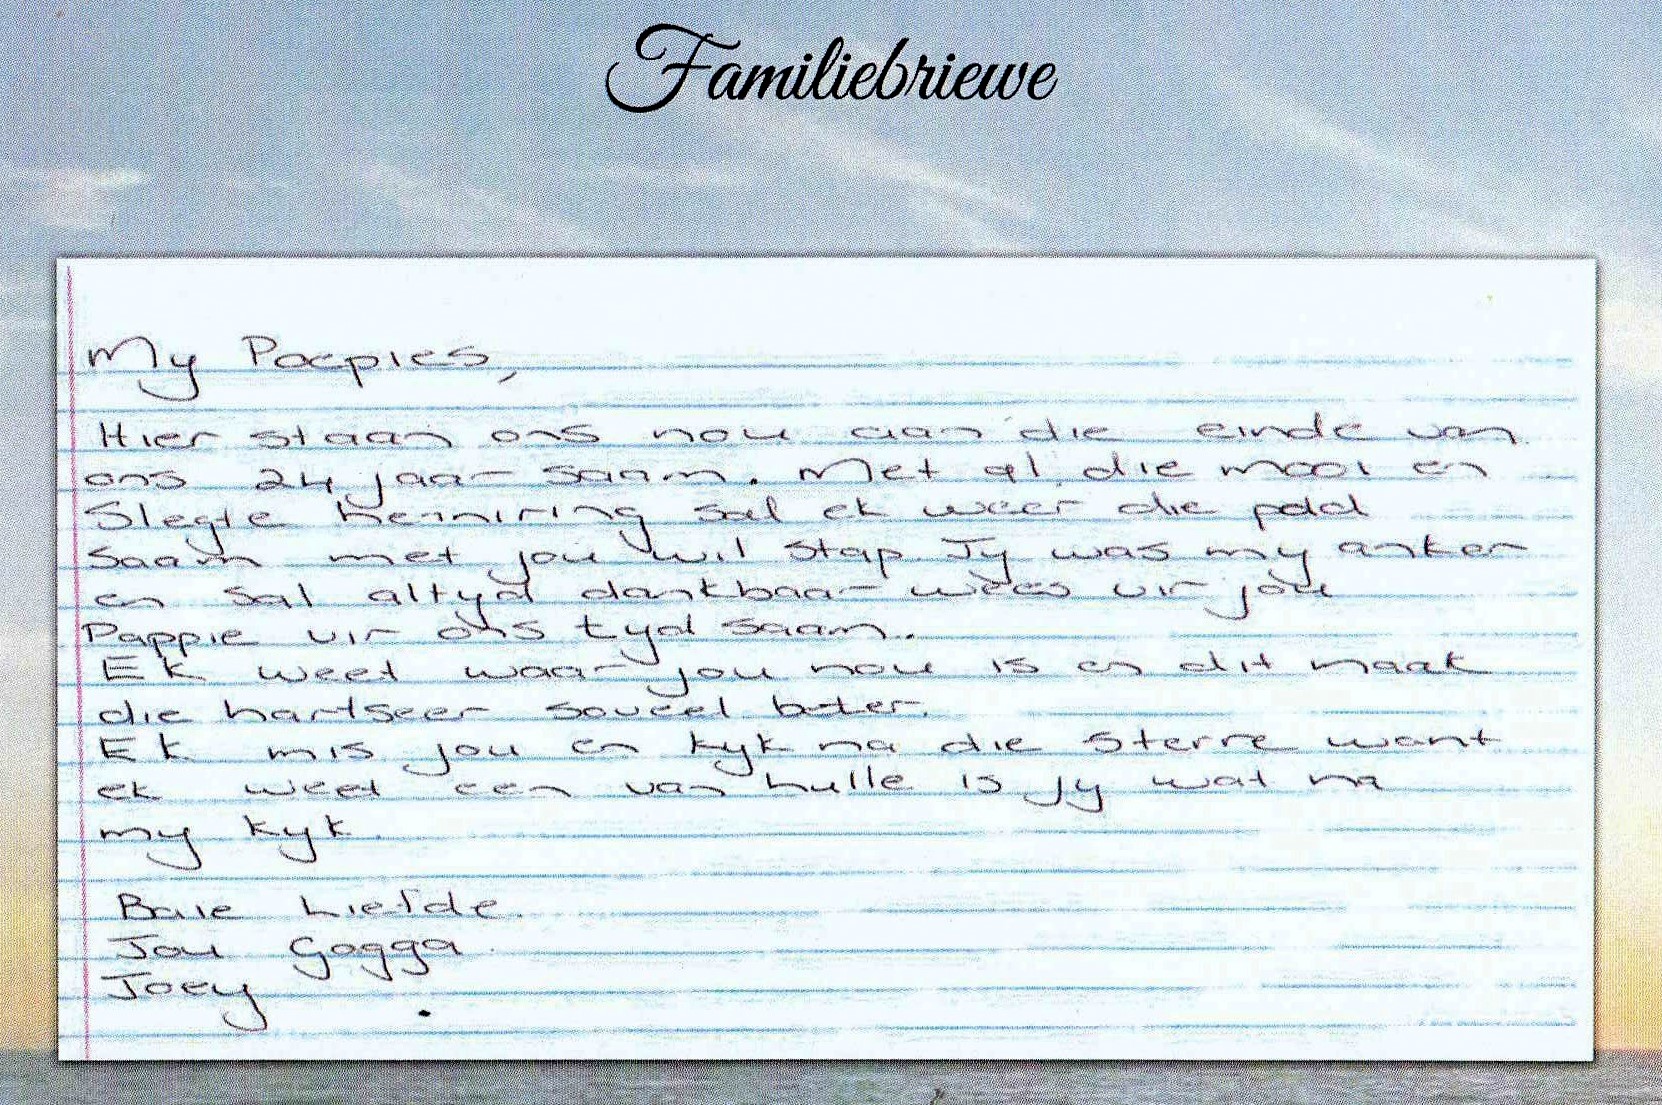 Familiebriewe
My Poepies,
Hier staan ons nou aan die einde van
ons 24 jaar saam. Met al die mooi en
Slegte herriniring sal ek weer die pad
saam met jou wil stap Jy was my anker
en sal altyd dankbaar wees vir jou
Pappie vir ons tyd saam.
Ek weet waar jou nou is en dit maak
die hartseer soveel beter.
Ek mis jou en kyk na die sterre want
ek weet een van hulle is Jy wat na
my kyk
Baie Liefde.
Jou Gogga
Joey